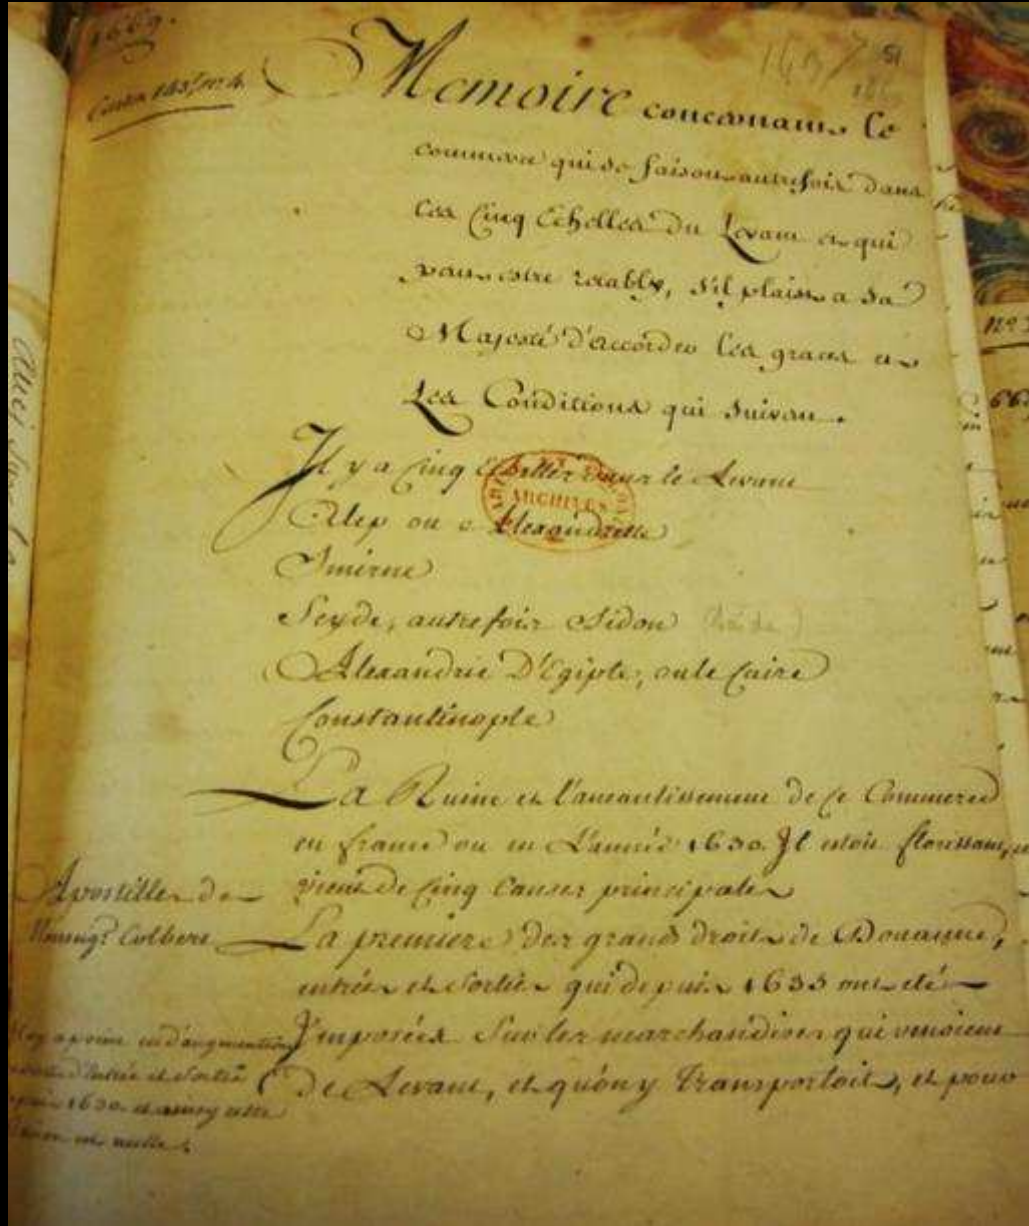 1669.
Memoire concernant le
commerce qui se faisoit autrefois dans
les Cinq Echelles du Levant et qui
peut estre restably, s'il plaist a Sa
Majesté d'accorder les graces et
Les Conditions qui suivent.
Il y a Cinq Echelles dans le Levant
ARCHIVES
Alep ou Alexandrette
Smirne
Seyde, autrefois Sidon
Alexandrie D'Egipte, ou le Caire
Constantinople
La Ruine et l'aneantissement de ce Commerce
en france ou en L'année 1630. Il estoit florissant,
vient de Cinq Causes principales
Apostilles de
Monseigr. Colbert
La premiere des grands droits de Douanne,
entrées et sorties qui depuis 1633 ont eté
Imposées Sur les marchandises qui venoient
de Levant, et qu'on y Transportoit, et pour
point eu d'augmentation
d'Entrée et Sortie
1630. et ainsy cette
est nulle.
51